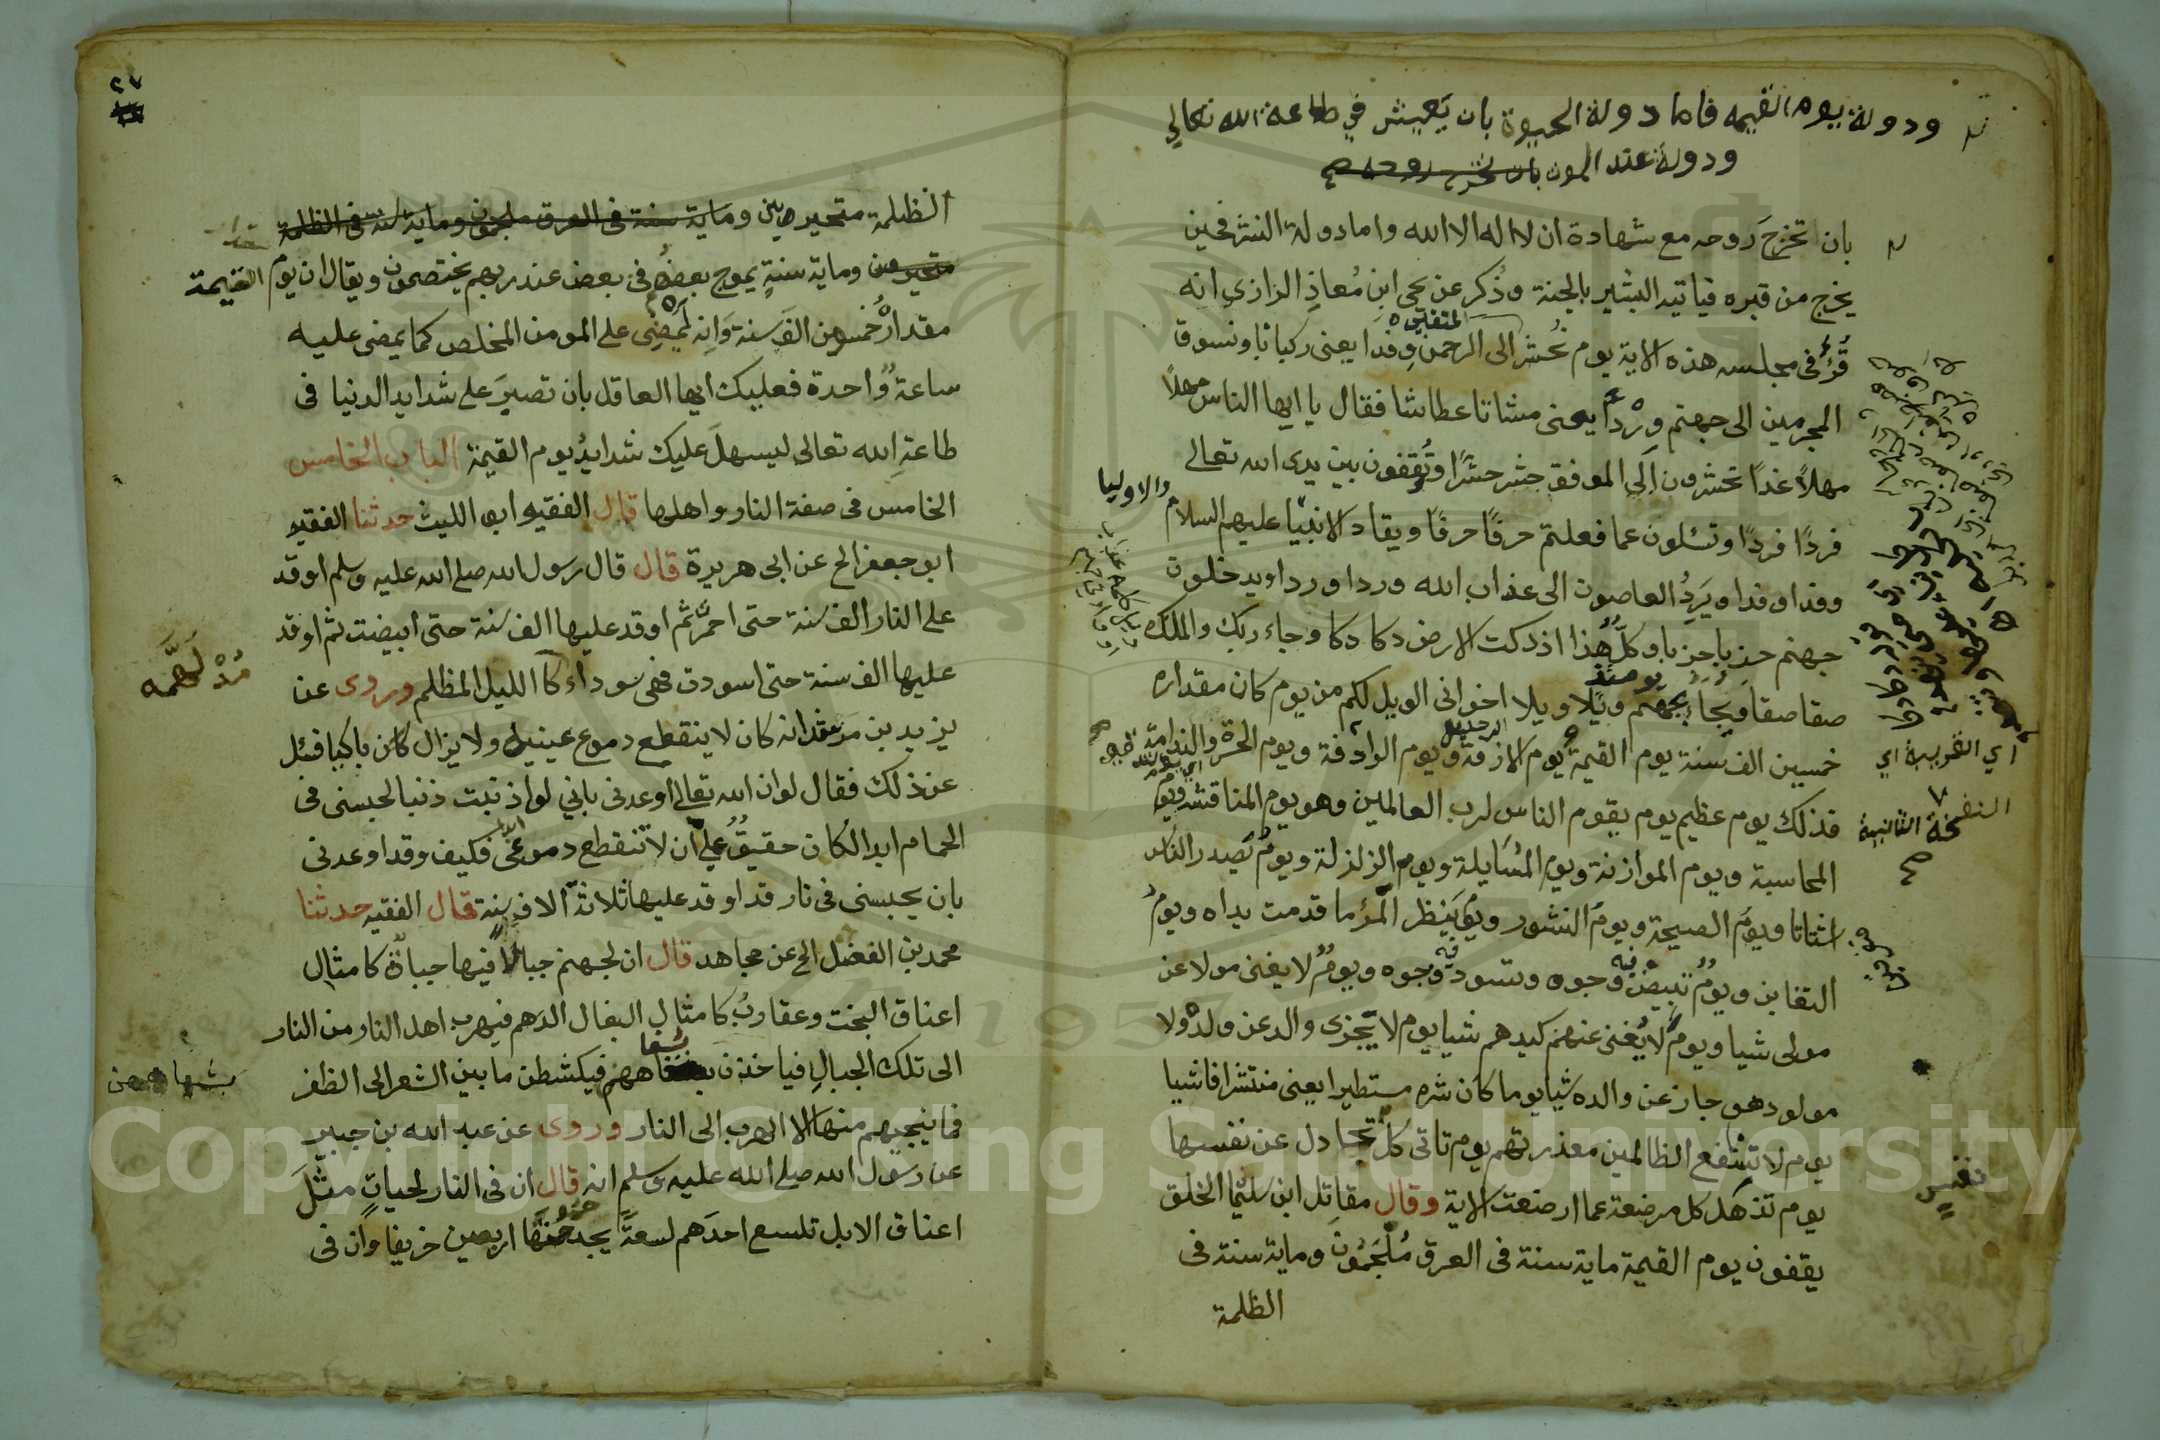 ودولة يوم القيمه فاما دولة الحيوة بان يعيش في طاعة الله تعالي
ودولة عند الموت بان تخرج روحه
بان تخرجَ روحه مع شهادة ان لا اله الا الله واما دولة النشر فحين
يخرج من قبره فياتيه البشير بالجنة وذُكر عن يحي ابنِ مُعاذِ الرازي انه
قُرِئَ فى مجلسه هذه الاية يوم نحُشر المتقين الى الرحمن وفدًا يعنى ركبانا ونسوق
المجرمين الى جهنم وِرْدًا يعنى مشاتا عطاشا فقال يا ايها الناس مهلاً
مهلاً غدًا تحشرون اِلَى الموقف حشر حشرًا وتُوقفون بين يدى الله تعالے
فردًا فردًا وتسئلون عما فعلتم حرفًا حرفًا ويقاد الانبيا عليهم السلام والاوليا
وفدا وفدا ويَرِدُ العاصون الى عذاب الله وردا وردا ويدخلون
جهنم حزبا حزبا وكلُّ هذا اذ دكت الارض دكا دكا وجاء ربك والملك
صفا صفا وَيُجاءُ يومئذ بجهنم ويْلا ويلا اخوانى الويل لكم من يوم كان مقداره
خمسين الف سنة يوم القيمة يوم الازفة ويوم الرادفة ويوم الحسرة والندامة
فذلك يوم عظيم يوم يقوم الناس لرب العالمين وهو يوم المناقشة ويوم
المحاسبة ويوم الموازنة ويوم المُسَايلة ويوم الزلزلة ويومُ يَصدر الناس
اشتاتا ويومُ الصيحة ويومُ النشور ويومُ يَنظر المَرْؤ ما قدمت يداه ويومُ
التغابن ويومُ تبيضّ فيه وجوه وتسود فيه وجوه ويومُ لا يغنى مولا عن
مولى شيا ويومُ لا يُغنى عنهم كيدهم شيا يوم لا يَجزى والد عن ولده ولا
مولود هو جاز عن والده شيا يوما كان شره مستطيرا يعنى منتشرا فاشيا
يوم لا تنفع الظالمين معذرتهم يوم تاتى كل نفسٍ تجادل عن نفسها
يوم تذهَل كل مرضعة عما ارضعت الاية وقال مقاتل ابن سليمْا الخلق
يقفون يوم القيمة ماية سنة فى العرق مُلْجَمُوْنَ وماية سنة فى
الظلمة
أي القريبة اي
النفخة الثانية
نفسٍ
٢٧
الظلمة متحيرين وماية سنة فى العرق ملجمون وماية سنة فى الظلمة
متحيرين وماية سنةٍ يموج بعضُهُم فى بعض عند ربهم يختصمون ويقال ان يوم القيمة
مقدارُ خمسين الفَ سنة وَاِنه لَيَمضِى على المومن المخلص كما يمضى عليه
ساعةً واحدة فعليك ايها العاقل بان تصبِرَ على شدايد الدنيا فى
طاعةِ الله تعالى ليسهلَ عليك شدايدُ يوم القيمة الباب الخامس
الخامس فى صفة النار واهلها قال الفقيه ابو الليث حدثنا الفقيه
ابو جعفر الخ عن ابى هريرة قال قال رسول الله صلے الله عليه وسلم اوقد
على النار الف سنة حتى احمرَّ ثم اوقد عليها الف سنة حتى ابيضت ثم اوقد
عليها الف سنة حتى اسودت فهى سوداء كا الليل المظلم وروى عن
يزيد بن مرثد انه كان لا ينقطع دموع عينيه ولا يزال كان باكيا فسئل
عن ذلك فقال لو ان الله تعالے اوعدنى بانِي لو اذنبت ذنبا لحبسنى فى
الحمام ابدا لكان حقيقٌ علےَّ ان لا تنقطع دموعى فكيف وقد اوعدنى
بان يحبسنى فى نار قد اوقد عليها ثلاثة الاف سنة قال الفقيه حدثنا
محمد بن الفضل الخ عن مجاهد قال ان لجهنم جبالا فيها حياةٌ كامثال
اعناق البخت وعقاربُ كامثال البغال الدَهم فيهرب اهل النار من النار
الى تلك الجبالِ فياخذن بشفاههم فيكشطن ما بين الشعر الى الظفر
فما ينجيهم منها الا الهرب الى النار وروى عن عبد الله بن جبير
عن رسول الله صلے الله عليه وسلم انه قال ان فى النار لحياتٍ مثلَ
اعناق الابل تلسع احدَهم لسعةً يجد حموتَها اربعين خريفا وان فى